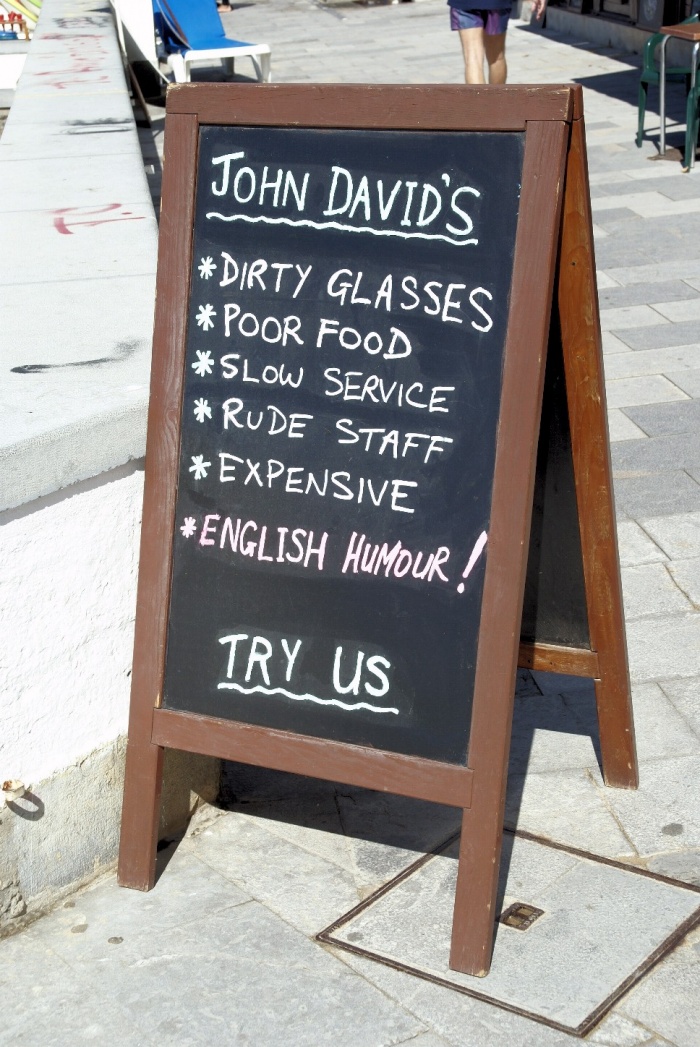 JOHN DAVID'S
* DIRTY GLASSES
* POOR FOOD
* SLOW SERVICE
* RUDE STAFF
* EXPENSIVE
* ENGLISH HUMOUR!
TRY US